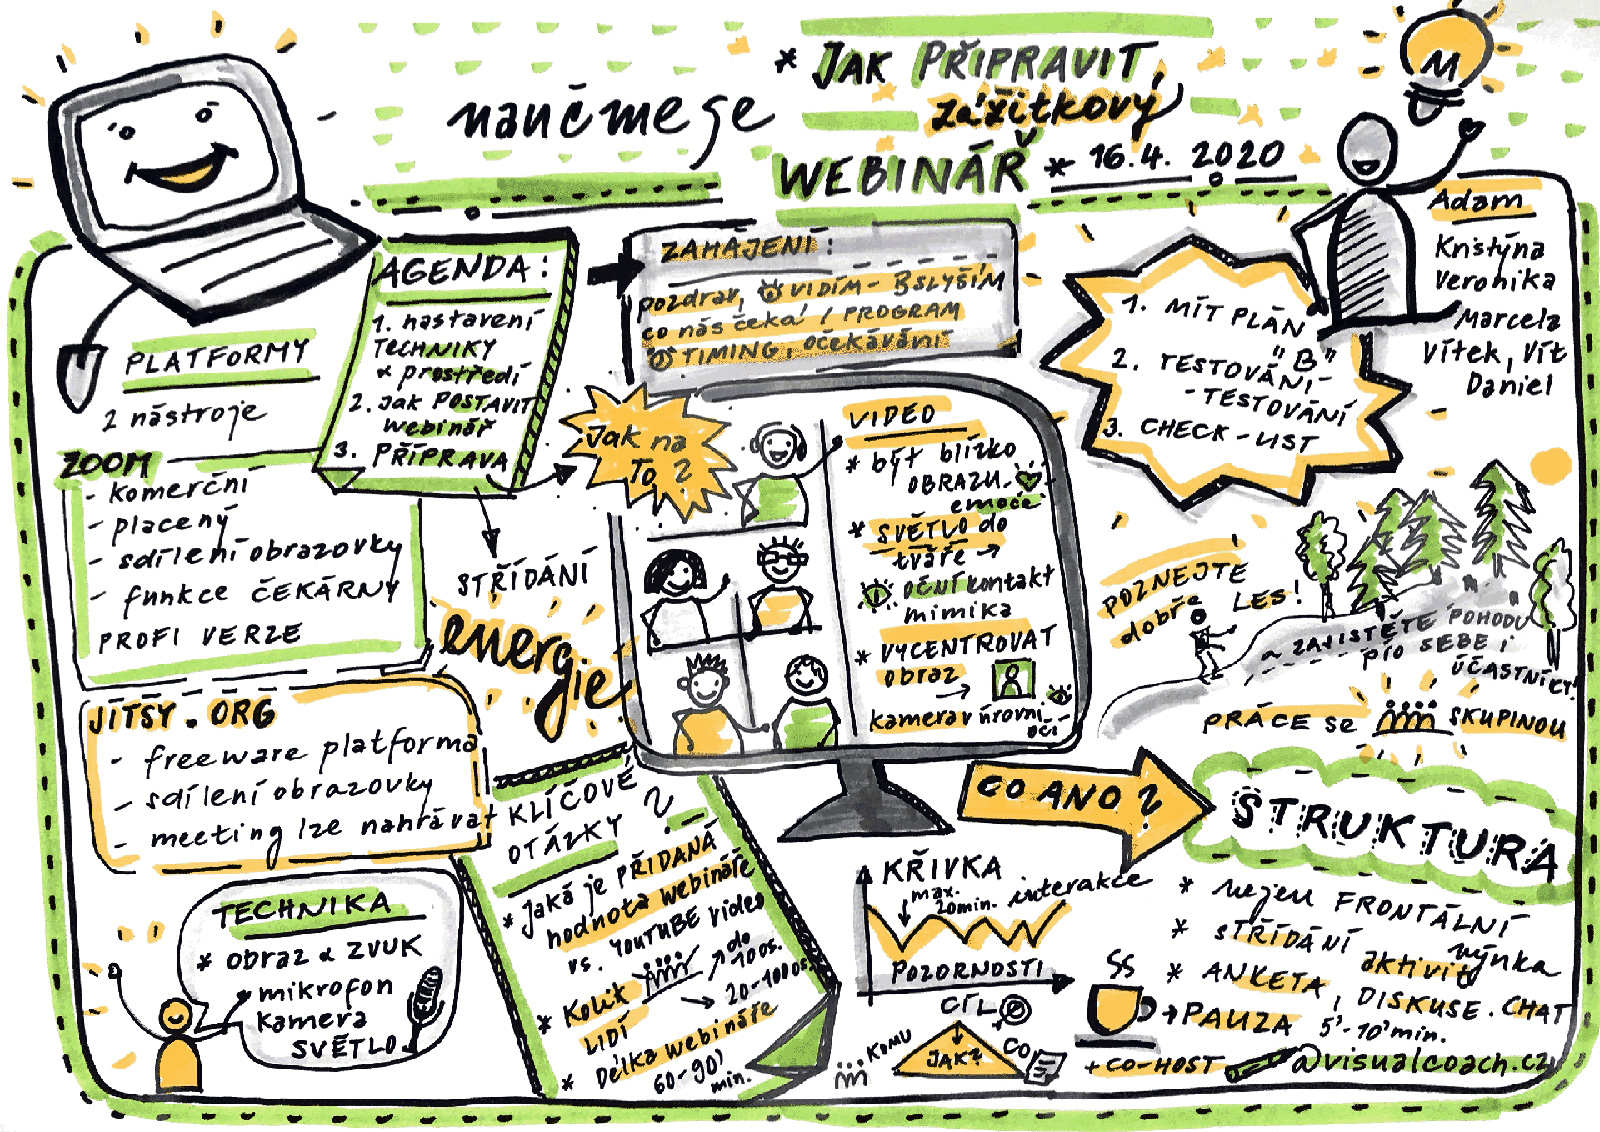 naučme se
* JAK PŘIPRAVIT
zážitkový
WEBINÁŘ * 16.4. 2020
M
Adam
Kristýna
Veronika
Marcela
Vítek, Vít
Daniel
AGENDA:
1. nastavení
TECHNIKY
& prostředí
2. Jak POSTAVIT
webinář
3. PŘÍPRAVA
ZAHÁJENÍ:
pozdrav, VIDÍM - SLYŠÍM
co nás čeká / PROGRAM
TIMING, očekávání
1. MÍT PLÁN
"B"
2. TESTOVÁNÍ -
- TESTOVÁNÍ
3. CHECK-LIST
PLATFORMY
2 nástroje
ZOOM
- komerční
- placený
- sdílení obrazovky
- funkce ČEKÁRNY
PROFI VERZE
JITSY.ORG
- freeware platforma
- sdílení obrazovky
- meeting lze nahrávat
TECHNIKA
* obraz & ZVUK
* mikrofon
kamera
SVĚTLO
STŘÍDÁNÍ
energie
Jak na
To ?
VIDEO
* být blízko
OBRAZU -
emoce
* SVĚTLO do
tváře →
oční kontakt
mimika
* VYCENTROVAT
obraz
→
kamera v úrovni
očí
KLÍČOVÉ
OTÁZKY ?
* Jaká je PŘIDANÁ
hodnota webináře
vs. YOUTUBE video
* Kolik
LIDÍ
do
100 os.
→ 20-100 os.
* Délka webináře
60-90'
min.
POZNEJTE
dobře LES!
ZAJISTĚTE POHODU
pro SEBE i
ÚČASTNÍKY!
PRÁCE SE SKUPINOU
CO ANO ?
STRUKTURA
* nejen FRONTÁLNÍ
výuka
* STŘÍDÁNÍ
aktivit
* ANKETA, DISKUSE. CHAT
→ PAUZA 5'-10' min.
+ CO-HOST
KŘIVKA
max.
20 min.
interakce
POZORNOSTI
CÍL
KOMU
JAK?
CO
@visualcoach.cz